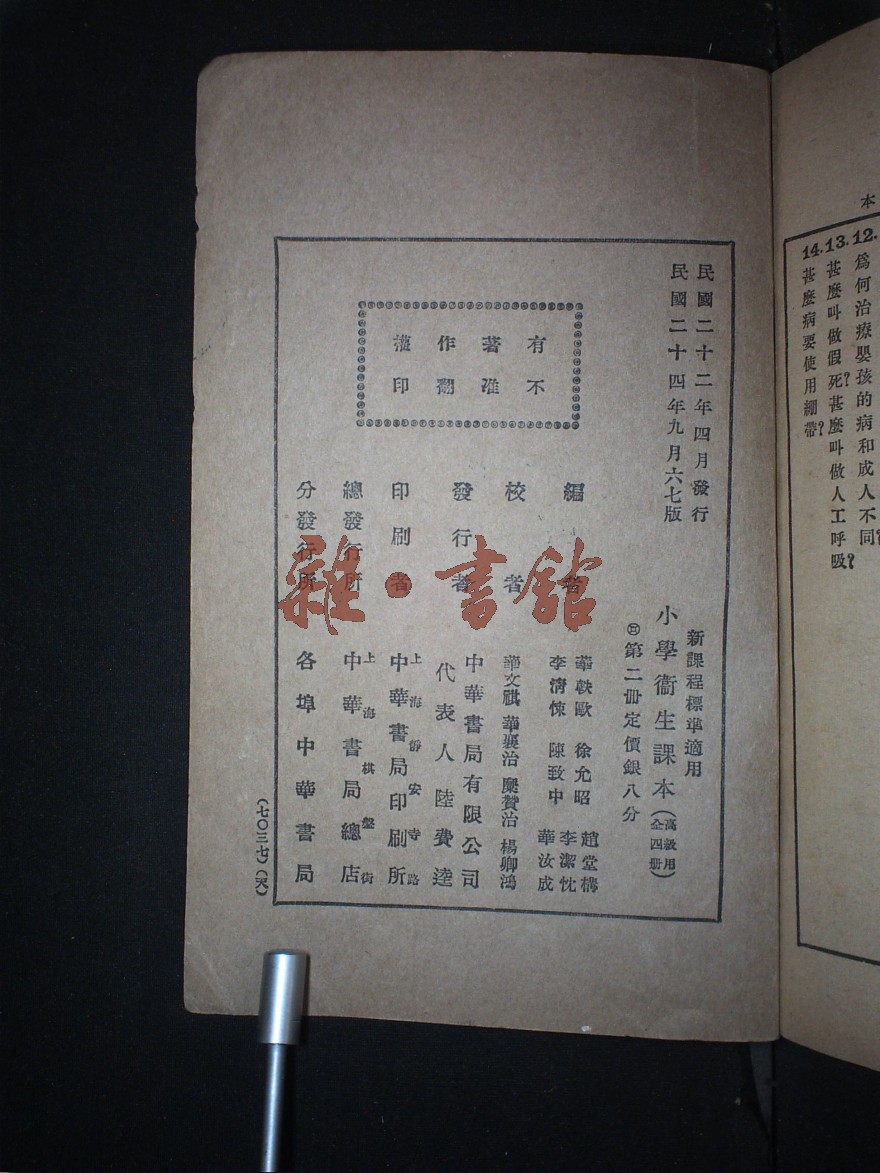 本
12.爲何治療嬰孩的病和成人不同?
13.甚麽叫做假死?甚麽叫做人工呼吸?
14.甚麽病要使用繃帶?
民國二十二年四月發行
民國二十四年九月六七版
有著作權
不准翻印
新課程標準適用
小學衞生課本(高級用全四册)
第二册定價銀八分
編者
徐允昭 趙堂構
李清悚 陳致中 李潔忱
華汝成
校者
華文祺 華襄治 糜贊治 楊卿鴻
發行者
中華書局有限公司
代表人 陸費逵
印刷者
上海靜安寺路
中華書局印刷所
總發行所
上海棋盤街
中華書局總店
分發行所
各埠中華書局
(七〇三七)(天)
雜·書舘